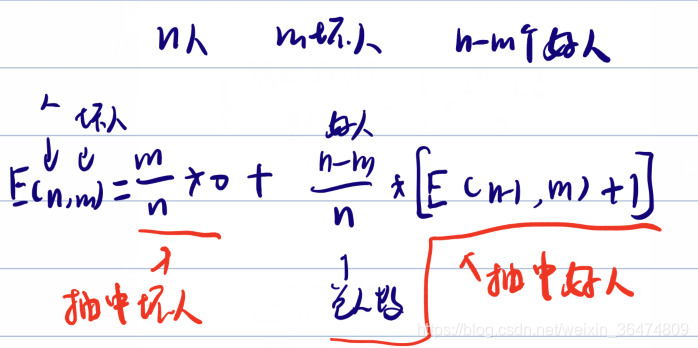 n人 m坏人 n-m个好人
人 坏人 好人
E(n,m) = m/n * 0 + n-m/n * [E(n-1,m)+1]
抽中坏人 总人数 抽中好人
https://blog.csdn.net/weixin_36474809